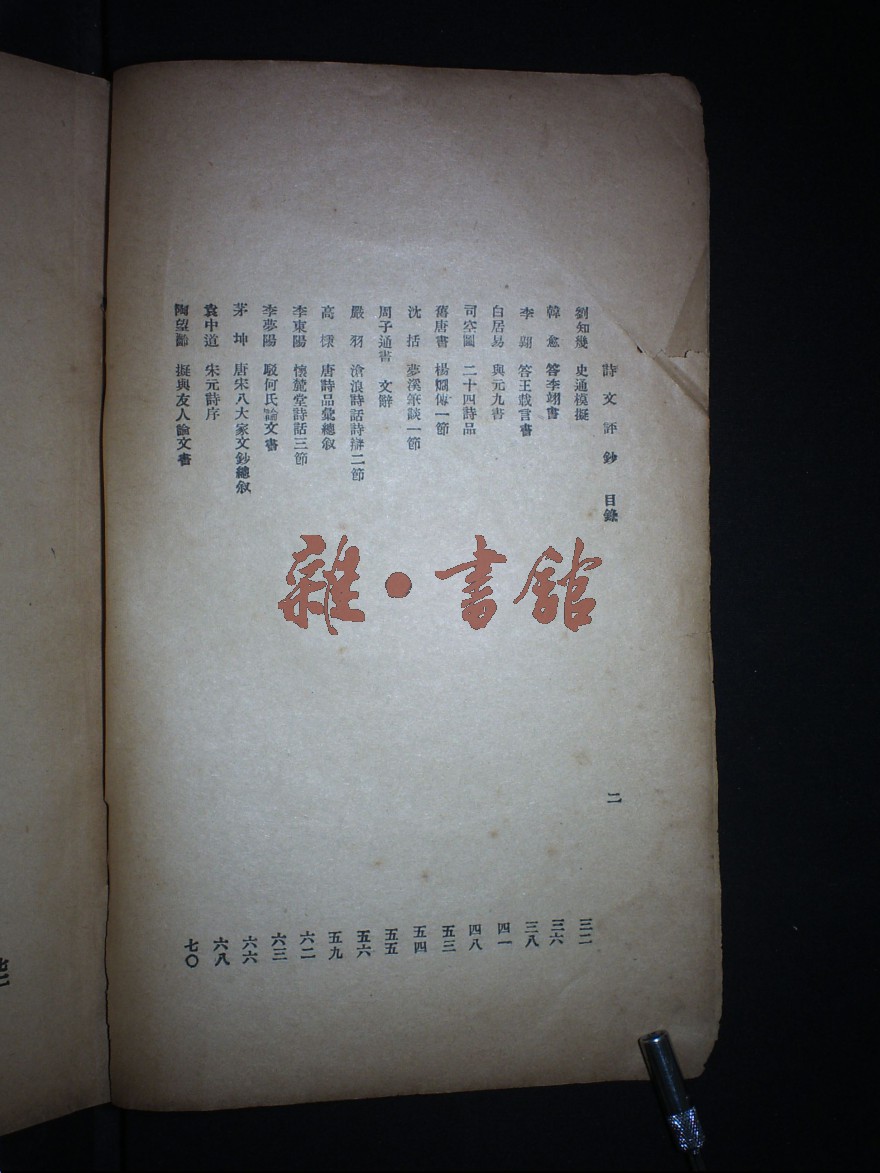 詩文評鈔 目錄 二
劉知幾 史通模擬 三二
韓愈 答李翊書 三六
李翺 答王載言書 三八
白居易 與元九書 四一
司空圖 二十四詩品 四八
舊唐書 楊烱傳一節 五三
沈括 夢溪筆談一節 五四
周子通書 文辭 五五
嚴羽 滄浪詩話詩辯二節 五六
高棅 唐詩品彙總叙 五九
李東陽 懷麓堂詩話三節 六二
李夢陽 駁何氏論文書 六三
茅坤 唐宋八大家文鈔總叙 六六
袁中道 宋元詩序 六八
陶望齡 擬與友人論文書 七〇
雜·書館